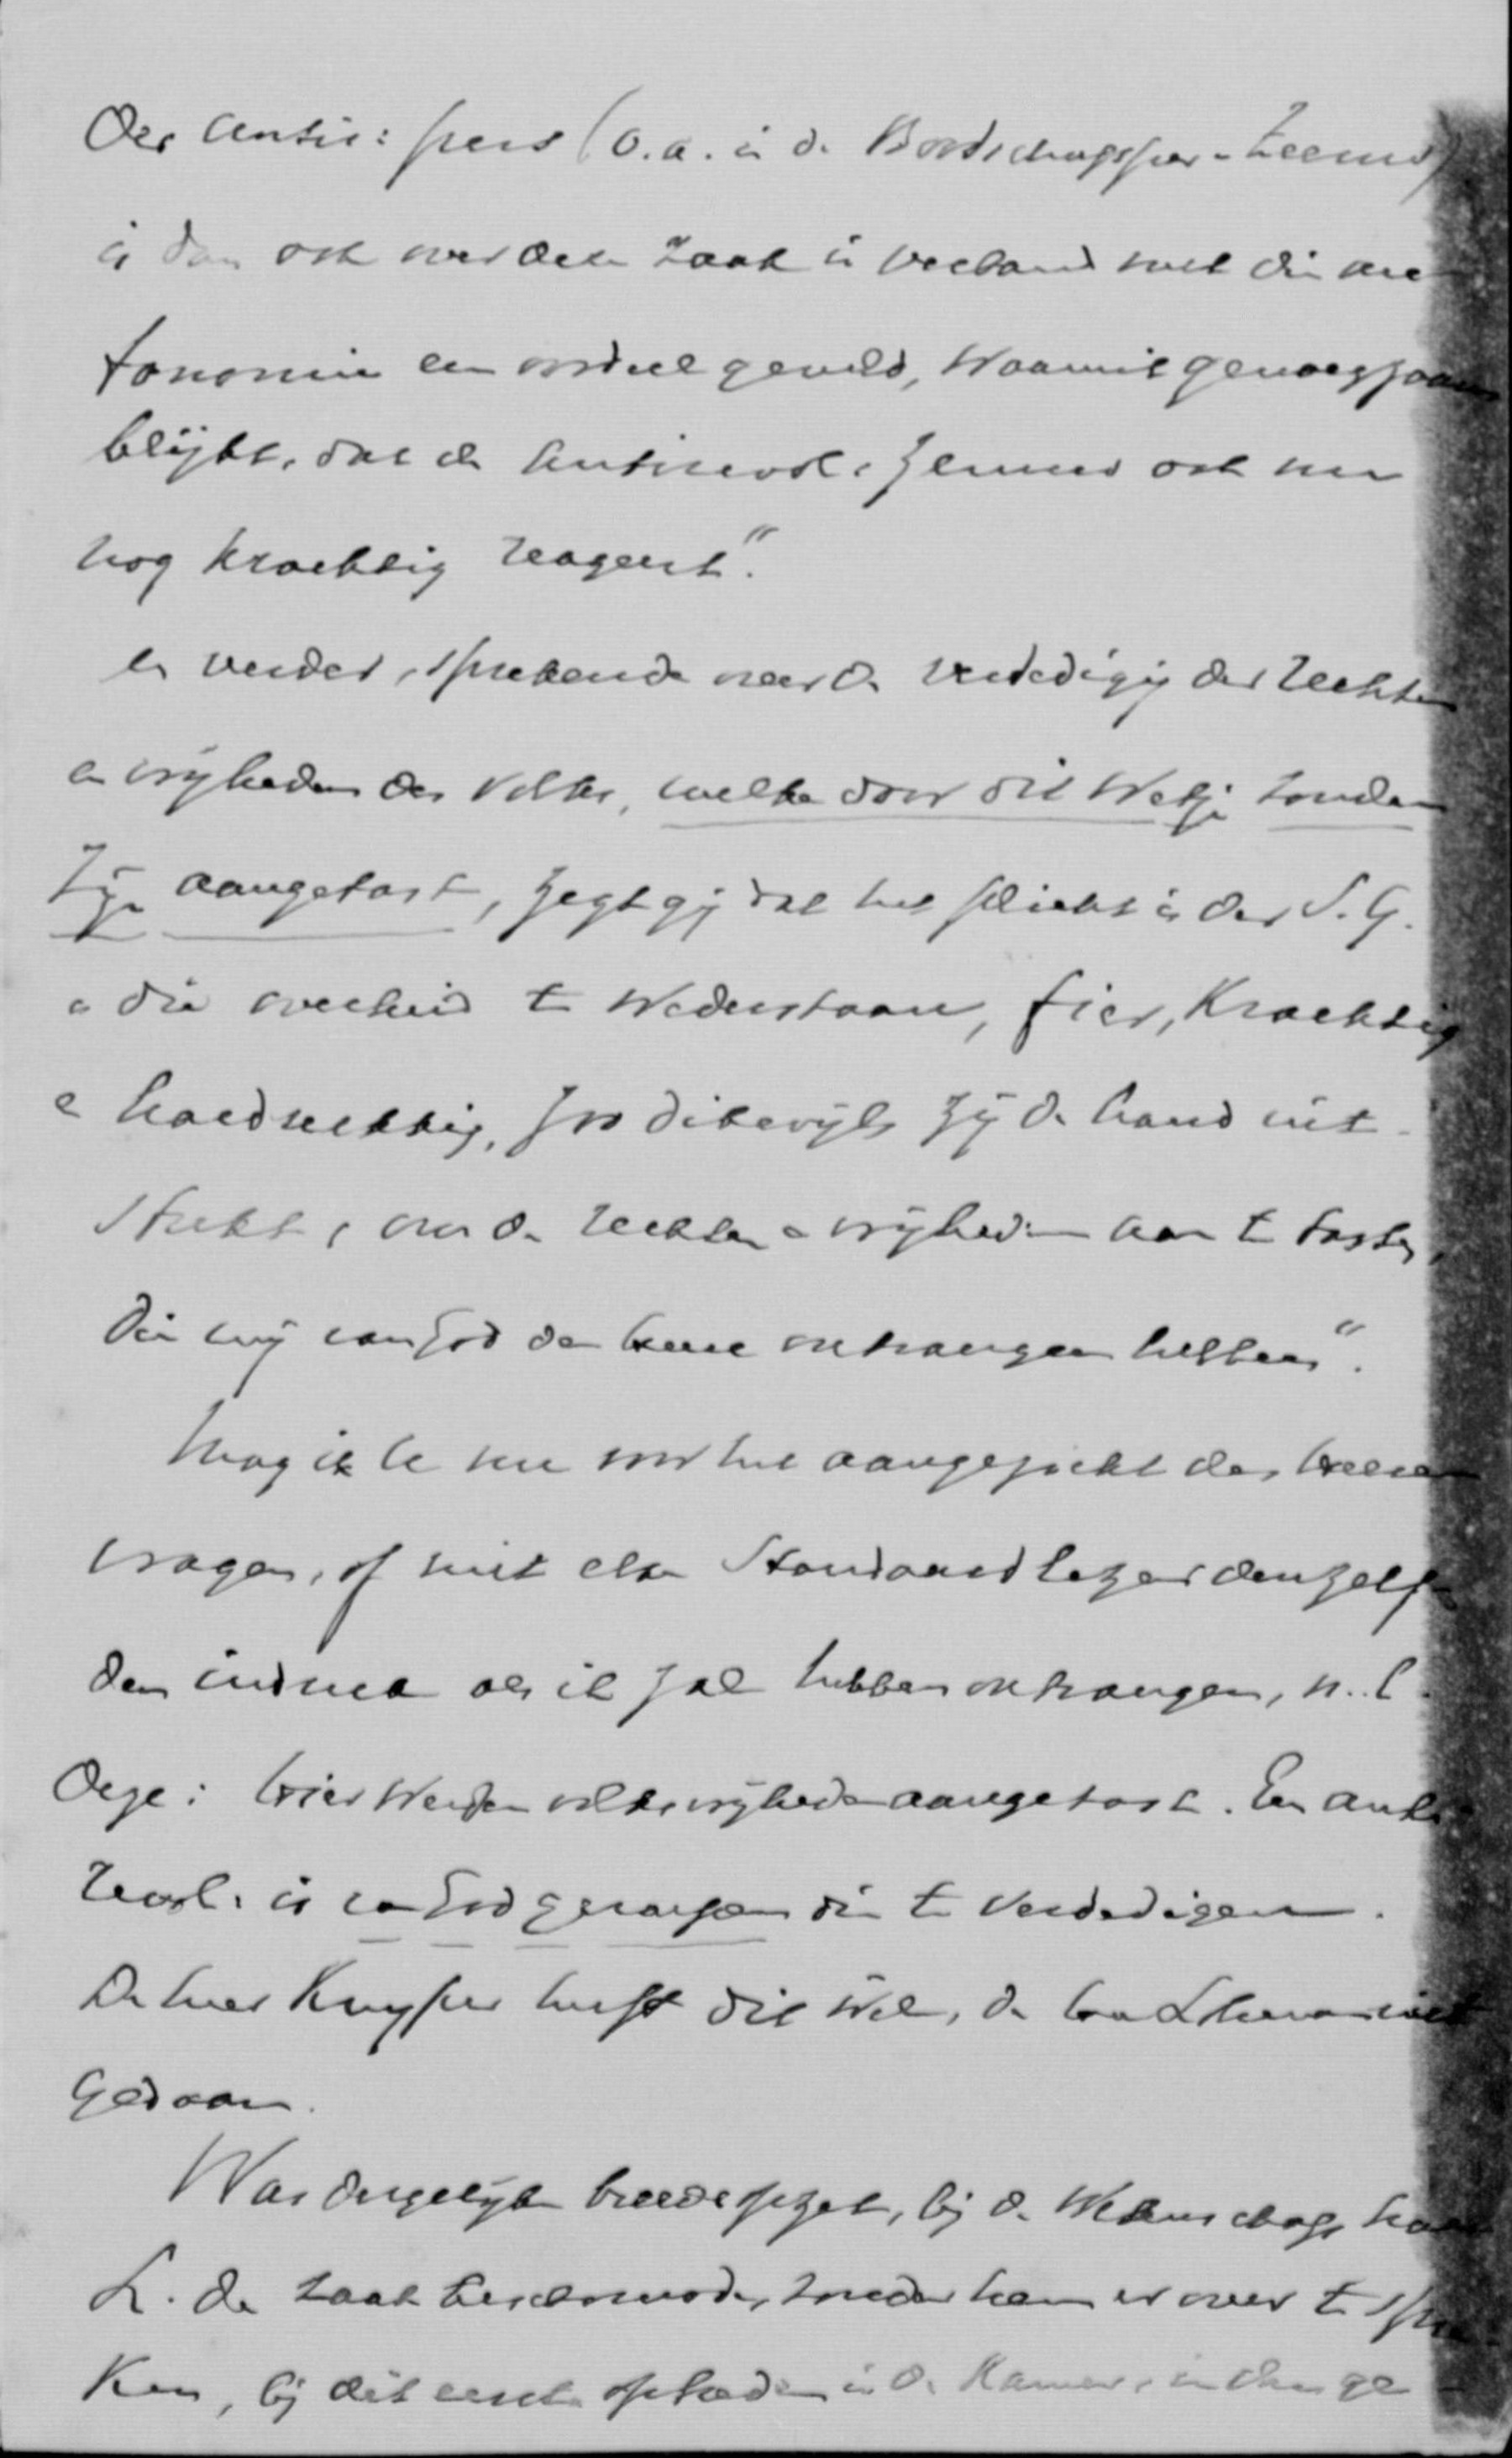 Der Antir: pers (o.a. in de
is dan ook over deze zaak in verband met die au
tonomie een oordeel geveld, waaruit genoegzaam
blijkt, dat de Antirevol: zenuw ook nu
nog krachtig reageert".
en verder, sprekende over de verdediging der rechten
en vrijheden des volks, welke door dit wetje zouden
zijn aangetast, zegt gij dat het plicht is der S.G.
om die overheid te wederstaan, fier, krachtig
en hardnekkig, zoo dikwijls zij de hand uit-
strekt, om de rechten en vrijheden aan te tasten,
die wij van God den Heere ontvangen hebben".
Mag ik U nu voor het aangezicht des Heeren
vragen, of niet elke Standaardlezer denzelf-
den indruk als ik zal hebben ontvangen, n.l.
deze: hier werden volksvrijheden aangetast. Een anti
revol: is van God geroepen die te verdedigen.
De heer Kuyper heeft dit wel, de heer Lohman niet
gedaan.
Was dergelijke breede opzet, bij de
L. de zaak zonder hem er over te spre
ken, bij dit eerste optreden in de Kamer, in den ge-